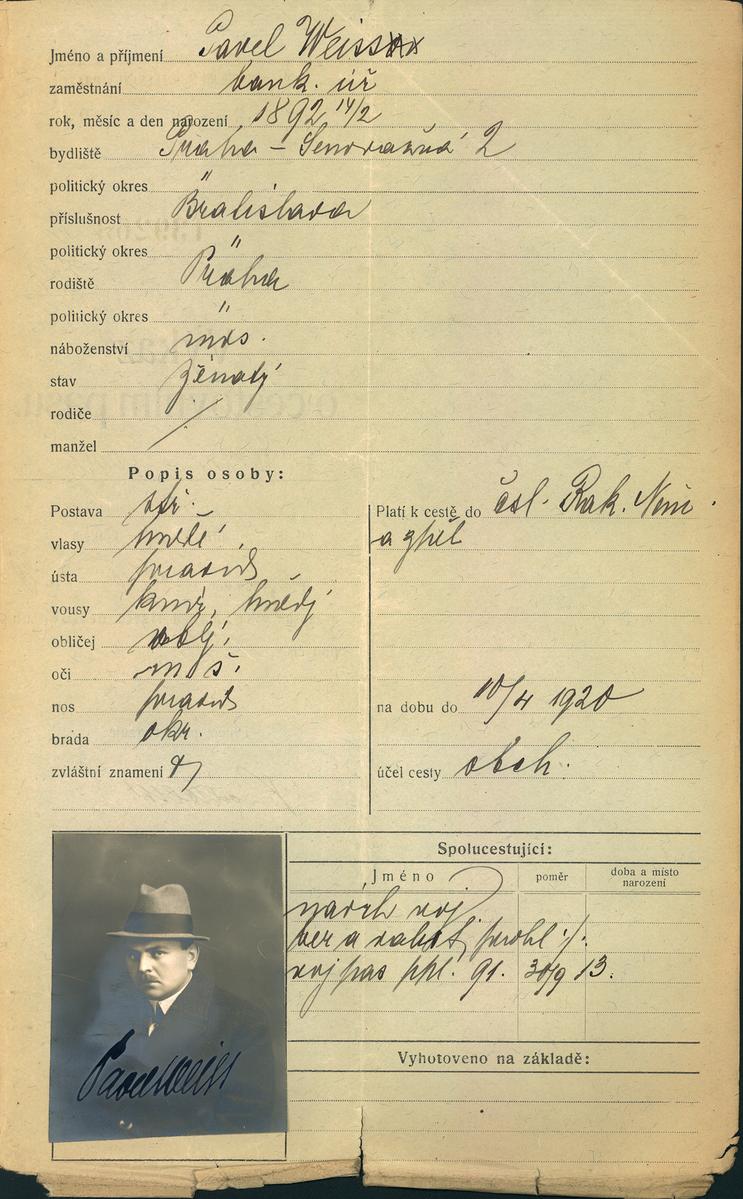 Jméno a příjmení Pavel Weiss
zaměstnání bank. úř
rok, měsíc a den narození 1892 14/2
bydliště Praha - 2
politický okres "
příslušnost Bratislava
politický okres "
rodiště Praha
politický okres "
náboženství mos.
stav ženatý
rodiče
manžel
Popis osoby:
Postava stř.
vlasy hnědé
ústa pravid
vousy knír, hnědý
obličej obl.
oči
nos pravid
brada okr.
zvláštní znamení
Platí k cestě do čsl. Rak. Něm.
a zpět
na dobu do 10/4 1920
účel cesty obch.
Spolucestující:
Jméno poměr doba a místo narození
voj
ber a prohl :/.
voj pas ppl. 91. 30/9 13.
Vyhotoveno na základě:
Pavel Weiss